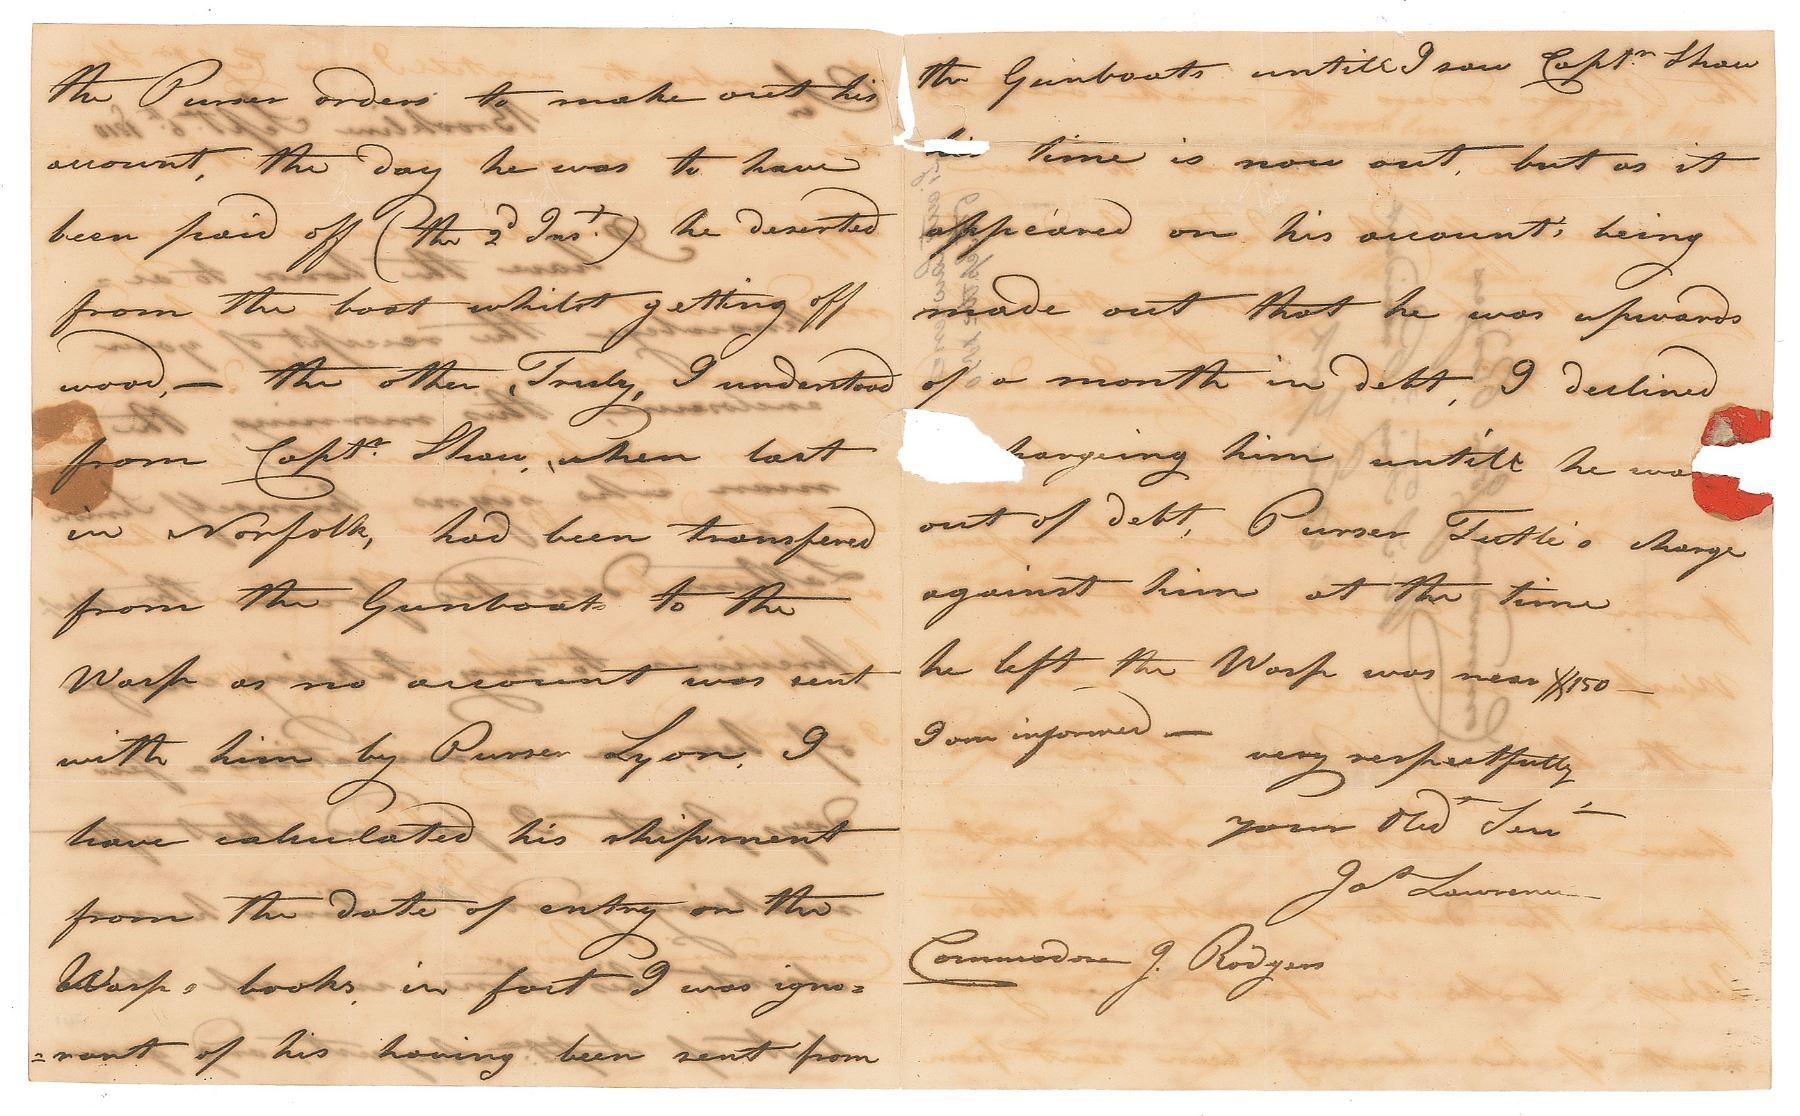 the Purser orders to make out his
account, the day he was to have
been paid off (the 2d Inst.) he deserted
from the boat whilst getting off
wood, — the other, Truly, I understood
from Captn. Shaw, when last
in Norfolk, had been transfered
from the Gunboats to the
Wasp as no account was sent
with him by Purser Lyon, I
have calculated his shipment
from the date of entry on the
Wasp,s books, in fact I was igno=
=rant of his having been sent from
the Gunboats untill I saw Captn. Shaw
his time is now out, but as it
appeared on his account; being
made out that he was upwards
of a month in debt, I declined
hargeing him untill he wa
out of debt, Purser charge
against him at the time
he left the Wasp was near $150 —
I am informed —
very respectfully
your Obdt Servt
Jas Lawrence
Commodore J. Rodgers
Brooklin Sept. 6th 1810